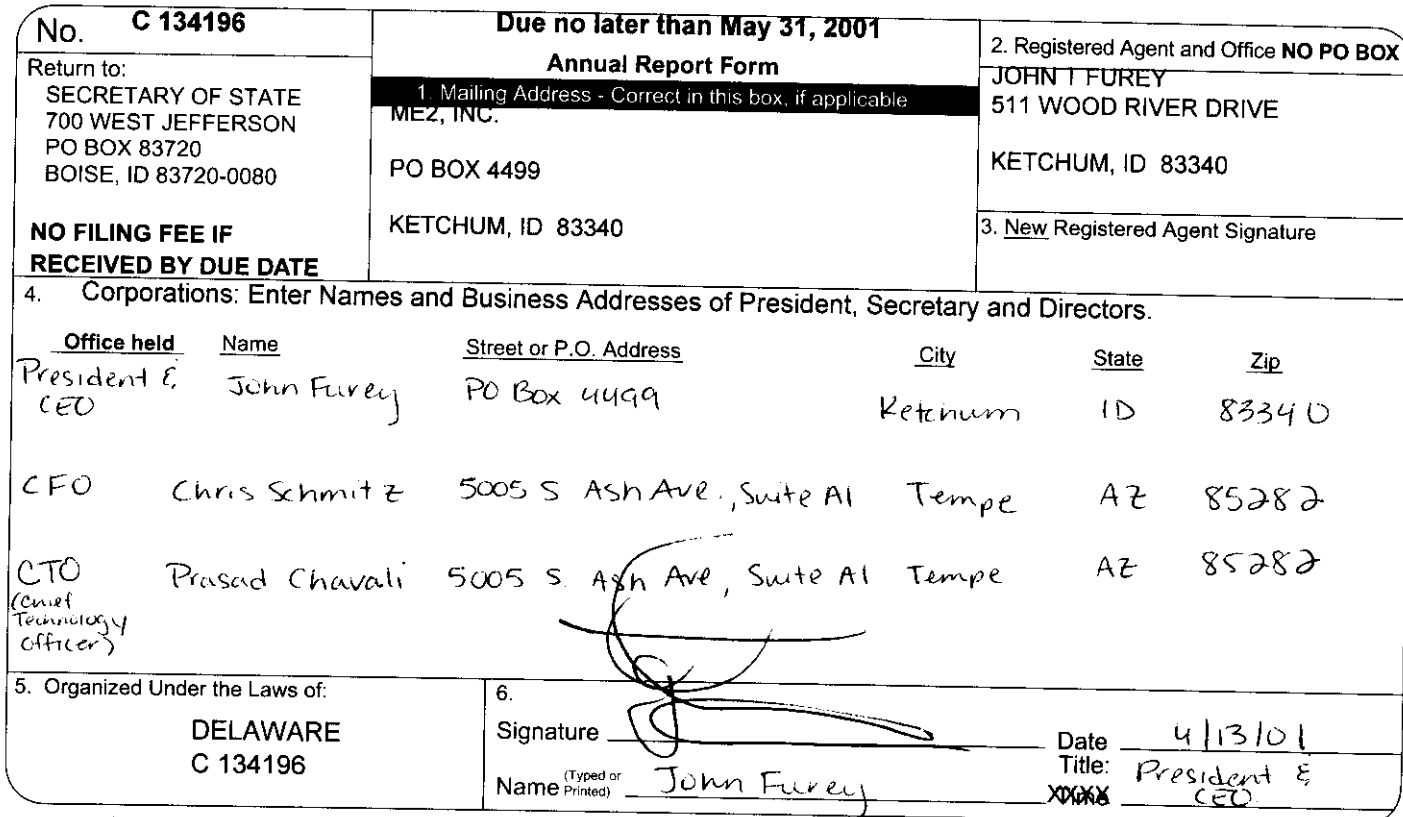 No. C 134196
Return to:
SECRETARY OF STATE
700 WEST JEFFERSON
PO BOX 83720
BOISE, ID 83720-0080
NO FILING FEE IF
RECEIVED BY DUE DATE
Due no later than May 31, 2001
Annual Report Form
1. Mailing Address - Correct in this box, if applicable
ME2, INC.
PO BOX 4499
KETCHUM, ID 83340
2. Registered Agent and Office NO PO BOX
JOHN T FUREY
511 WOOD RIVER DRIVE
KETCHUM, ID 83340
3. New Registered Agent Signature
4. Corporations: Enter Names and Business Addresses of President, Secretary and Directors.
Office held Name Street or P.O. Address City State Zip
President & John Furey PO Box 4499 Ketchum ID 83340
CEO
CFO Chris Schmitz 5005 S Ash Ave., Suite A1 Tempe AZ 85282
CTO Prasad Chavali 5005 S. Ash Ave, Suite A1 Tempe AZ 85282
(Chief
Technology
Officer)
5. Organized Under the Laws of:
DELAWARE
C 134196
6.
Signature Date 4/13/01
Name (Typed or Printed) John Furey Title: President &
CEO